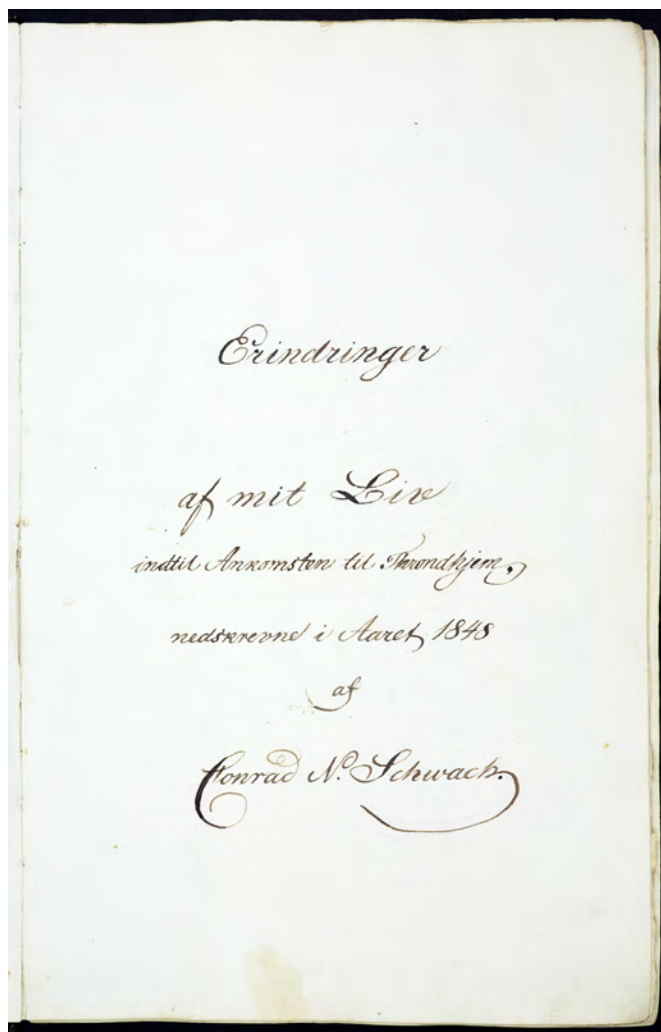 Erindringer
af mit Liv
indtil Ankomsten til Throndhjem,
nedskrevne i Aaret 1848
af
Conrad N. Schwach.